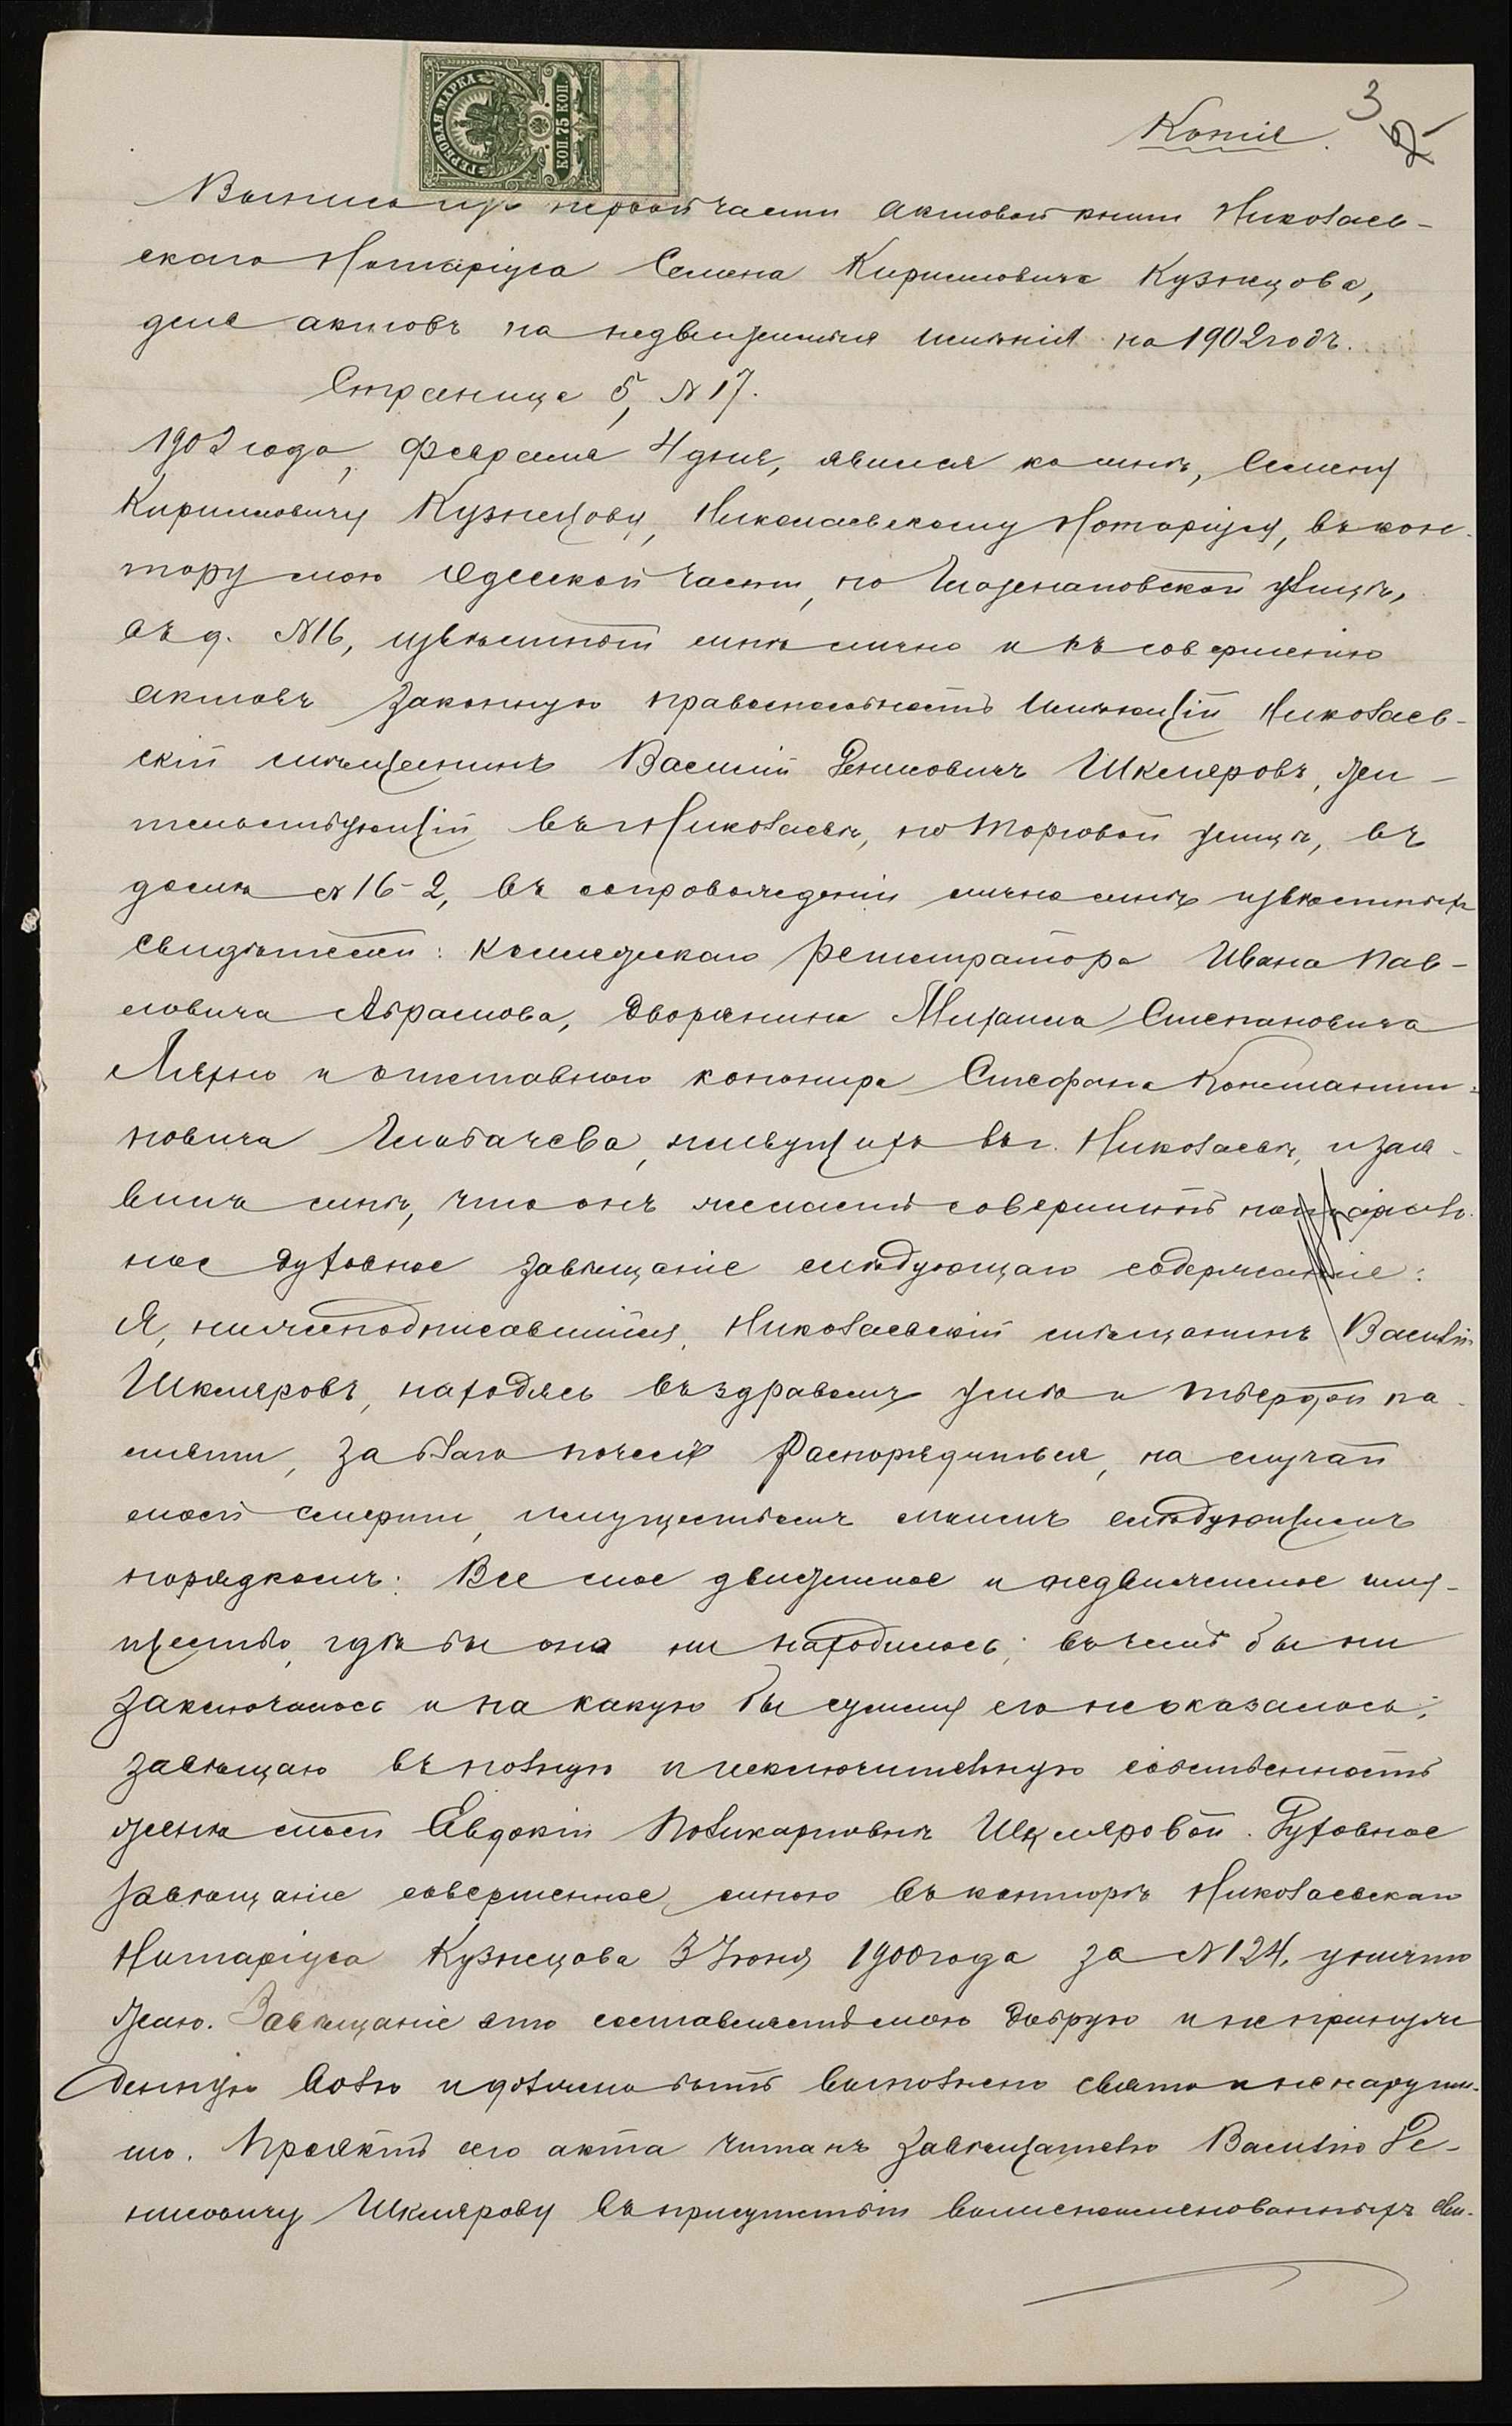 3
Копія.
ГЕРБОВАЯ МАРКА
КОП 75 КОП
Выпись изъ первой части актовой книги Николаев-
скаго Нотаріуса Семена Кирилловича Кузнецова,
для актовъ на недвижимыя имѣнія на 1902 годъ.
Страница 5, № 17.
1902 года, Февраля 4 дня, явился ко мнѣ, Семену
Кирилловичу Кузнецову, Николаевскому Нотаріусу, въ кон-
тору мою Одесской части, по улицѣ,
въ д. № 16, извѣстный мнѣ лично и къ совершенію
актовъ законную правоспособность имѣющій Николаев-
скій мѣщанинъ Василій Денисовичъ Шкляровъ, жи-
тельствующій въ г. Николаевѣ, по Торговой улицѣ, въ
домѣ № 16-2, въ сопровожденіи лично мнѣ извѣстныхъ
свидѣтелей: Коллежскаго Регистратора Ивана Пав-
ловича Абрамова, дворянина Михаила Степановича
и отставного канонира Стефана Константи-
новича живущихъ въ г. Николаевѣ, и зая-
вилъ мнѣ, что онъ желаетъ совершить нотаріаль-
ное духовное завѣщаніе слѣдующаго содержаніе:
Я, нижеподписавшійся, Николаевскій мѣщанинъ Василій
Шкляровъ, находясь въ здравомъ умѣ и твердой па-
мяти, за благо почелъ распорядиться, на случай
моей смерти, имуществомъ моимъ слѣдующимъ
порядкомъ: Все мое движимое и недвижимое иму-
щество, гдѣ бы оно ни находилось, въ чемъ бы ни
заключалось и на какую бы сумму его не оказалось,
завѣщаю въ полную и исключительную собственность
женѣ моей Евдокіи Поликарповнѣ Шкляровой. Духовное
завѣщаніе совершенное мною въ конторѣ Николаевскаго
Нотаріуса Кузнецова 3 Іюня 1900 года за № 124, уничто
жаю. Завѣщаніе это составляетъ мою добрую и непринуж
денную волю и должно быть выполнено свято и ненаруши-
мо. Проектъ сего акта читанъ завѣщателю Василію Де-
нисовичу Шклярову въ присутствіи вышепоименованныхъ сви-